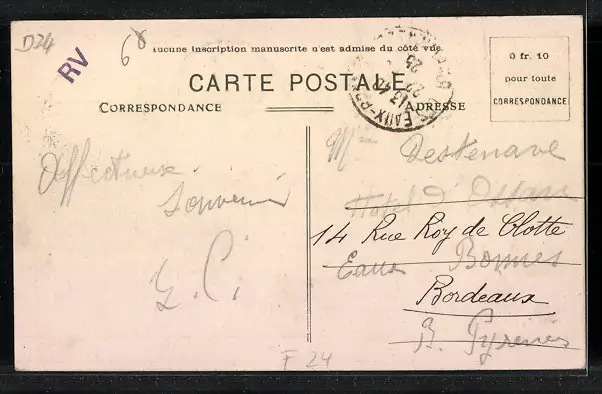 D24
RV
68
Aucune inscription manuscrite n'est admise du côté vue.
CARTE POSTALE
CORRESPONDANCE
ADRESSE
0 fr. 10
pour toute
CORRESPONDANCE
EAUX-B
13 40
25
Affectueux
souvenir
G. C.
Mme Destenave
Hotel d'Ossau
14 Rue Roy de Clotte
Eaux Bonnes
Bordeaux
B. Pyrénées
F 24